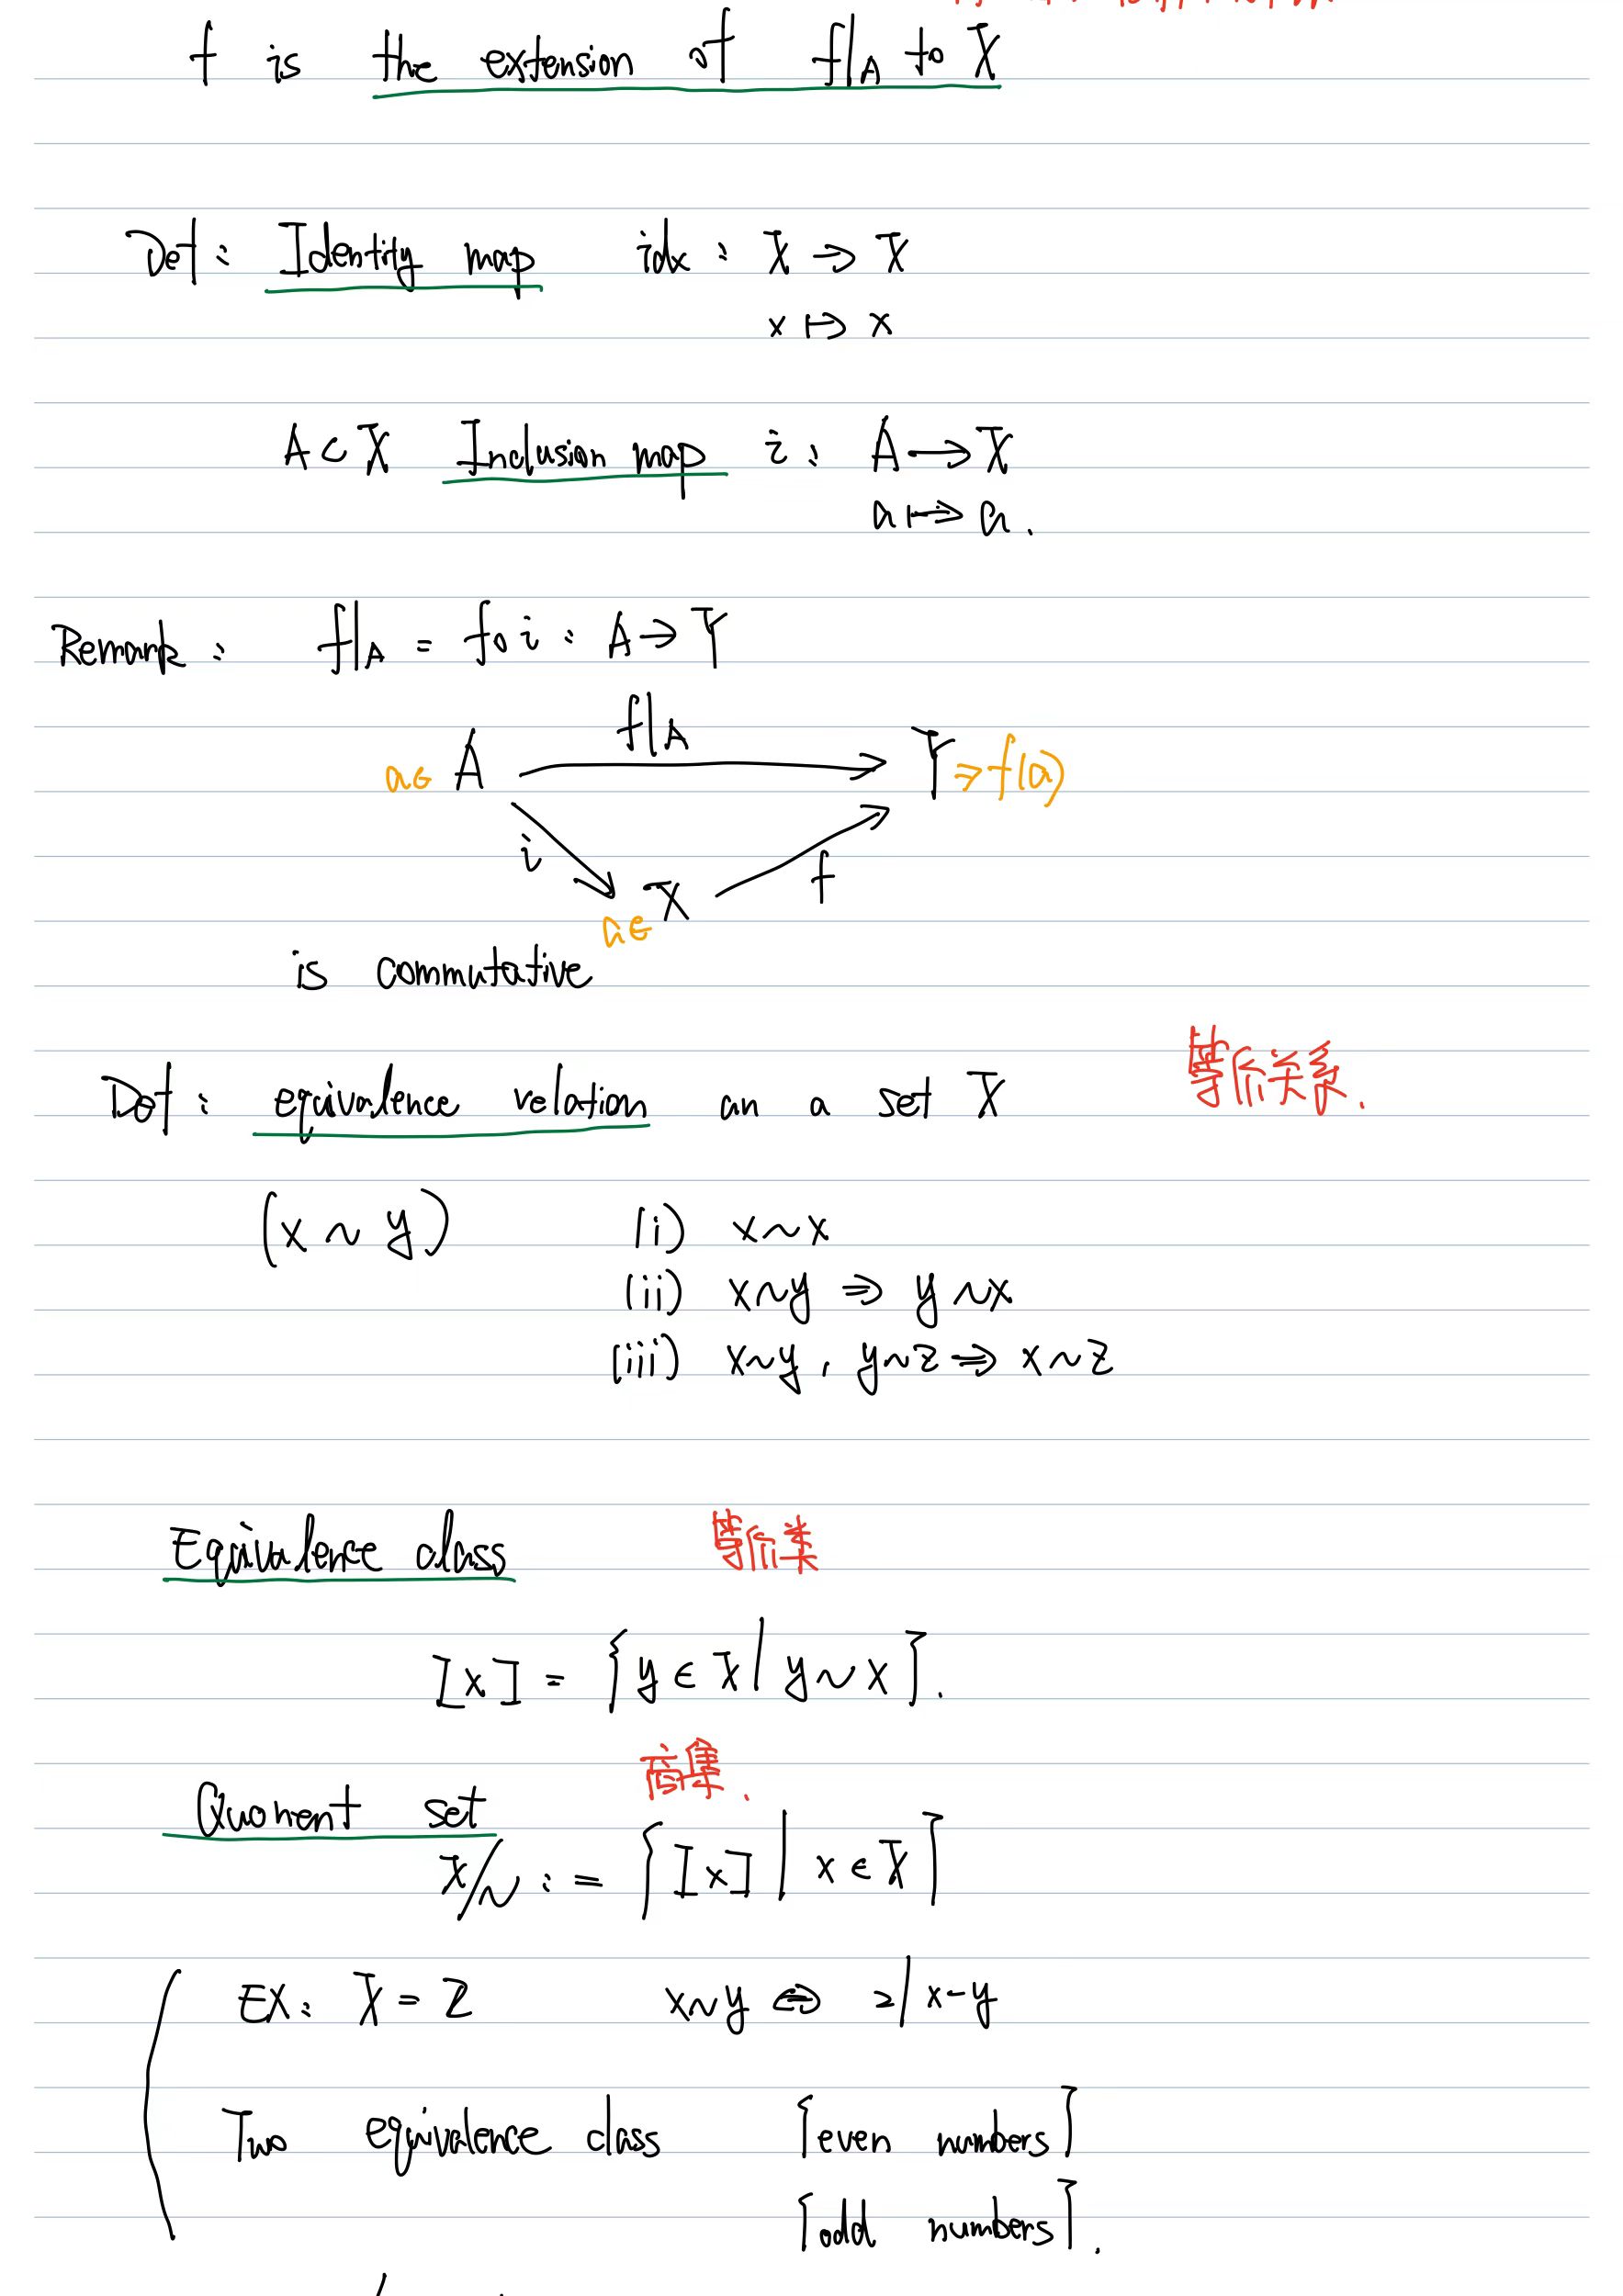 f is the extension of f|A to X
Def: Identity map idx: X → X
x ↦ x
A ⊂ X Inclusion map i: A → X
a ↦ a.
Remark: f|A = f∘i: A → Y
f|A
a∈ A Y ∋ f(a)
i f
a∈ X
is commutative
Def: equivalence relation an a set X 等价关系.
(x ~ y) (i) x~x
(ii) x~y ⇒ y~x
(iii) x~y, y~z ⇒ x~z
Equivalence class 等价类
[x] = {y ∈ X | y~x}.
商集.
Quonent set
X/~ := {[x] | x ∈ X}
EX: X = Z x~y ⇔ 2|x-y
Two equivalence class {even numbers}
{odd numbers}.